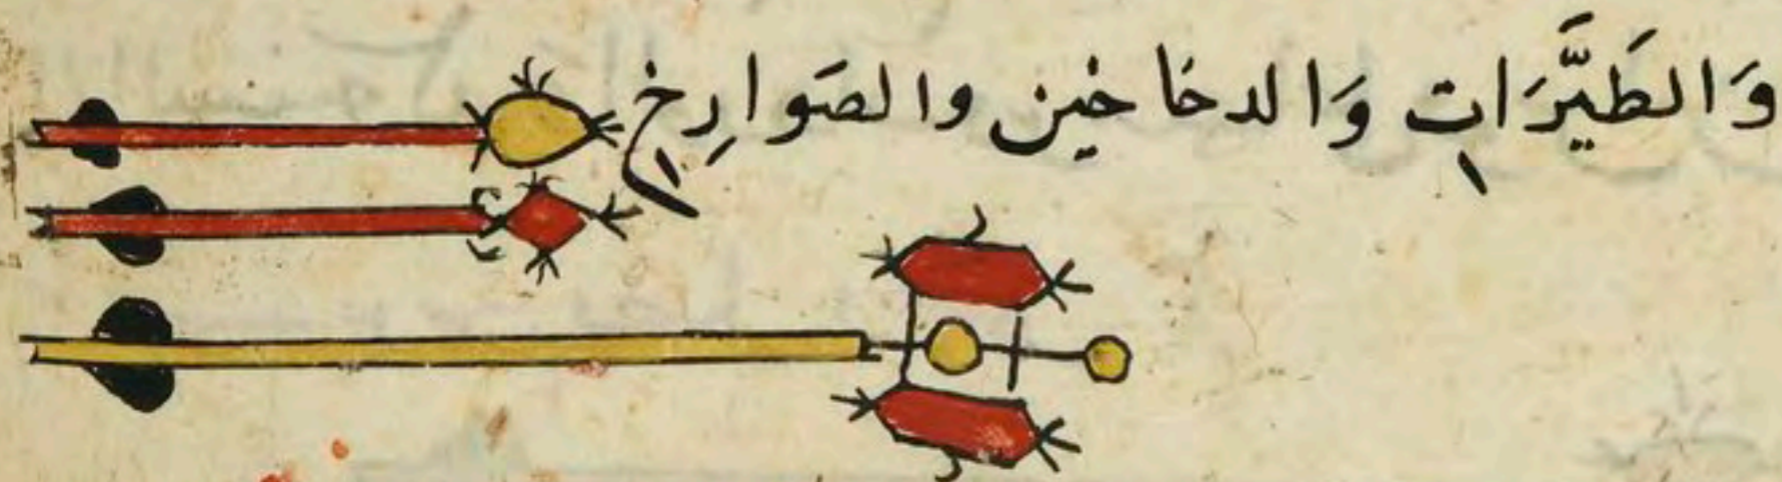 وَالطَيَّرَات وَالدخاخين والصَوارِخ